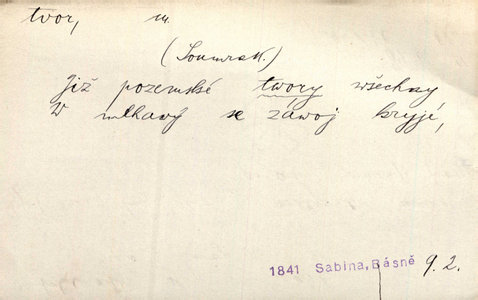 tvor, m.
(Soumrak.)
Již pozemské twory wšechny
W mlhawý se záwoj kryjé,
1841 Sabina, Básně 9.2.